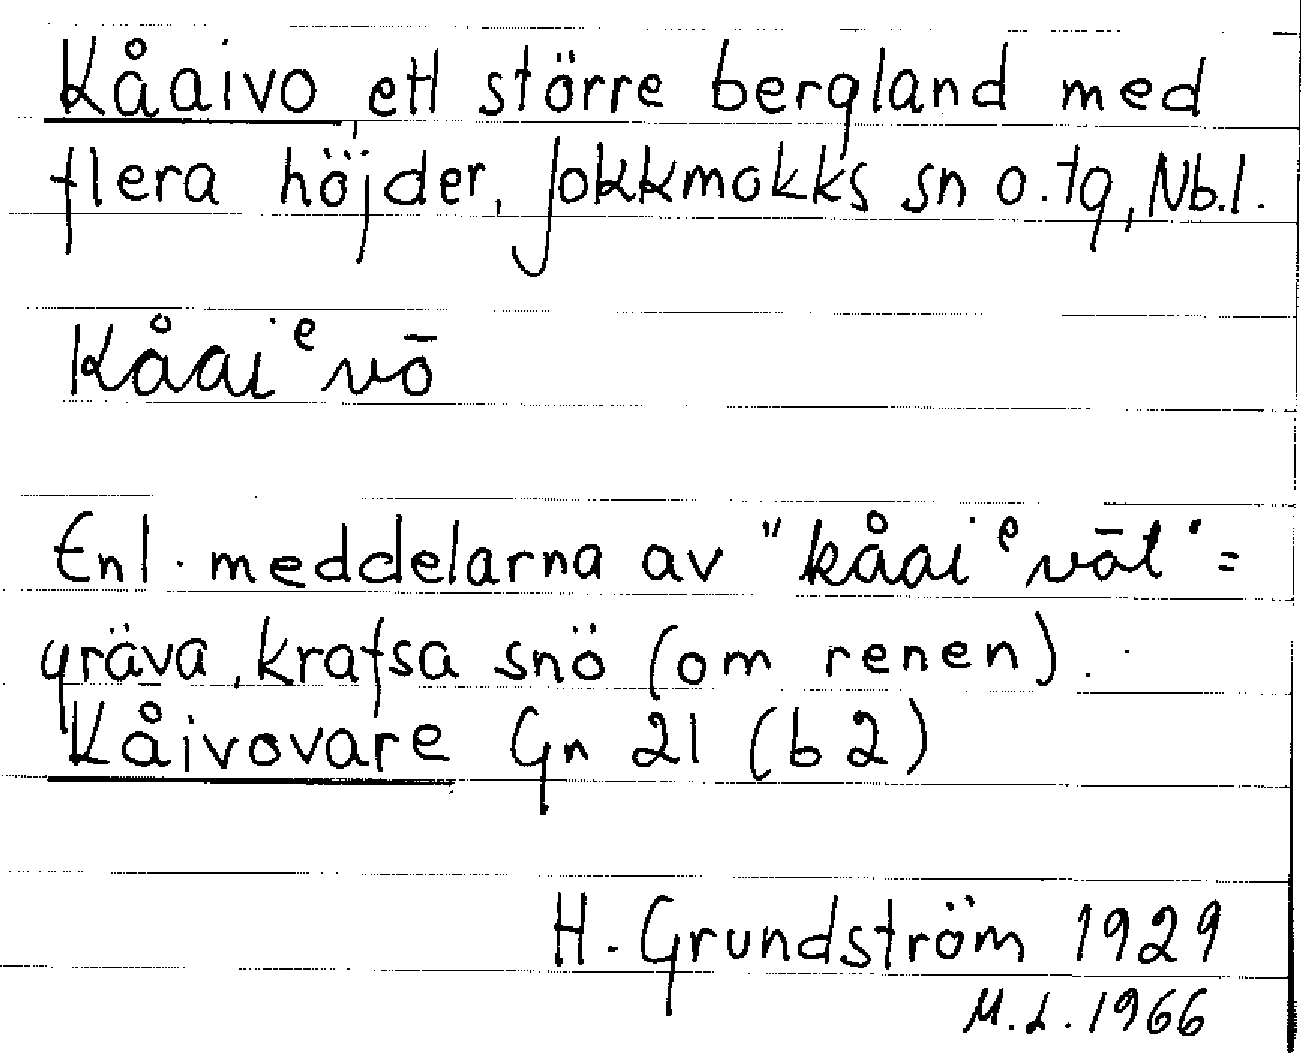 Kåaivo, ett större bergland med
flera höjder, Jokkmokks sn o. tg, Nb.l.
Kåaiᵉvō
Enl. meddelarna av "kåaiᵉvāt" =
gräva, krafsa snö (om renen).
Kåivovare Gn 21 (b2)
H. Grundström 1929
M.L. 1966